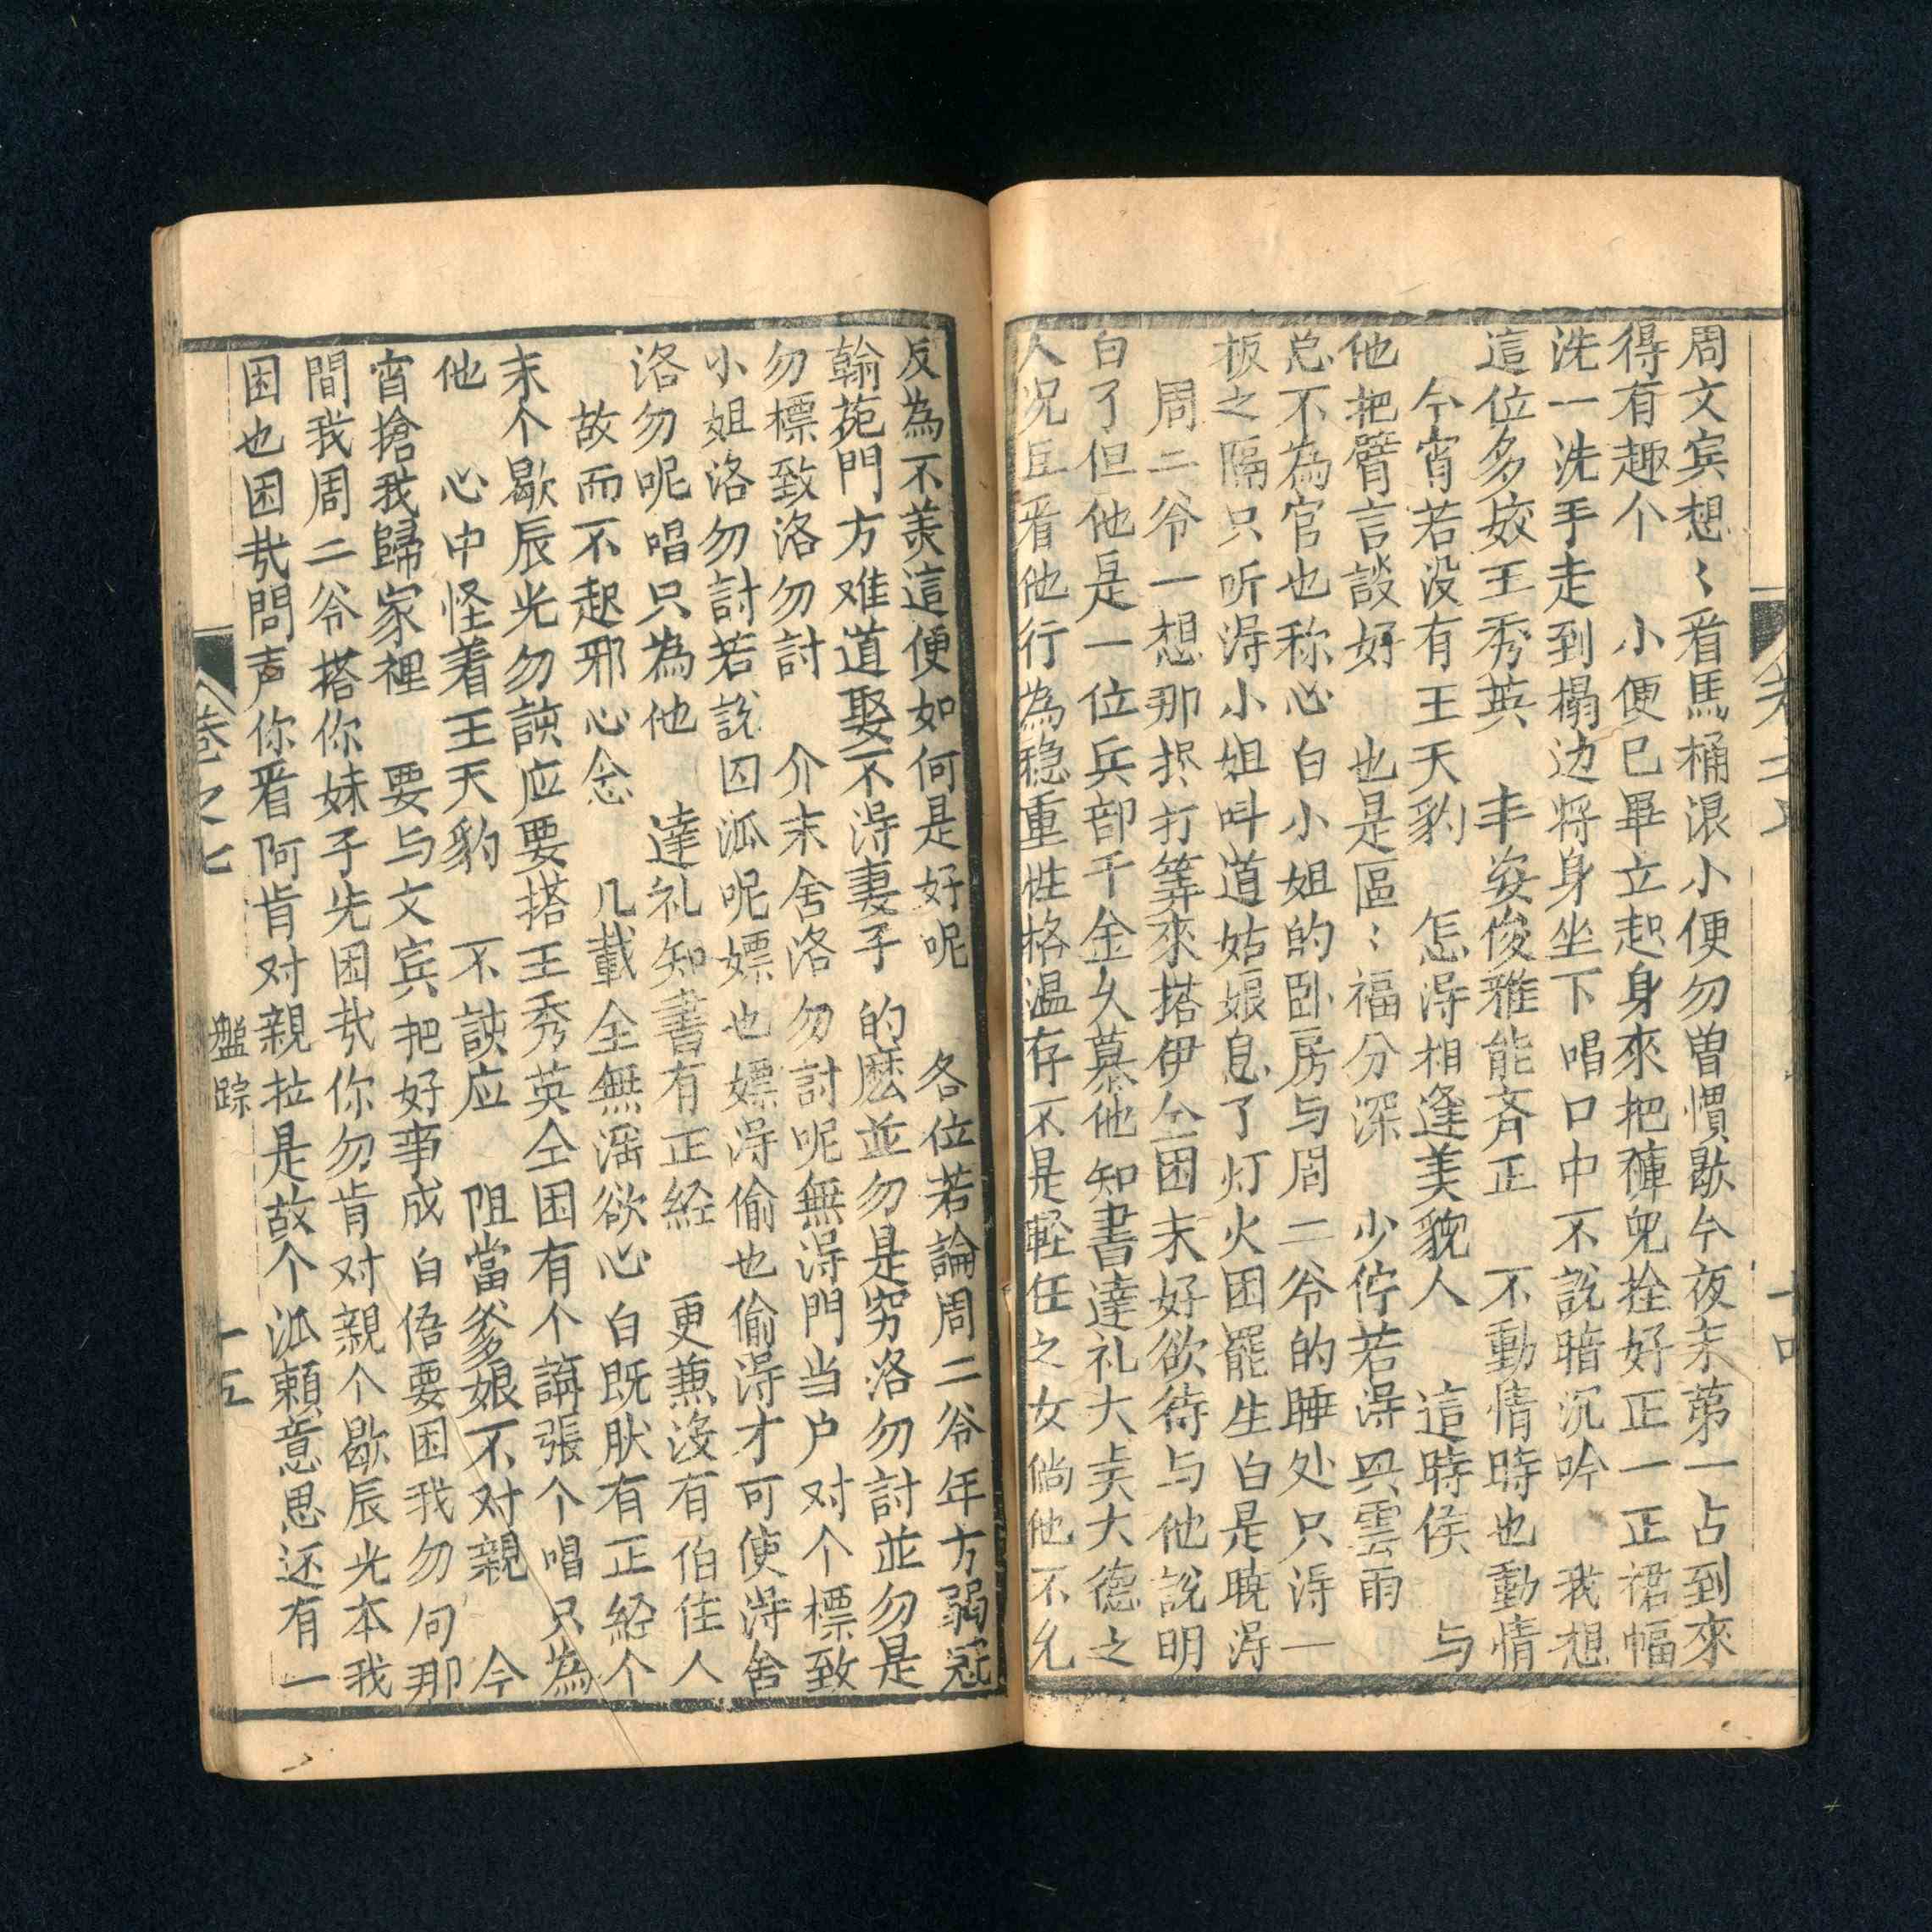 周文宾想〻看馬桶浪小便勿曽慣歇今夜末苐一占到來
得有趣个　小便已畢立起身來把褲兜拴好正一正裙幅
洗一洗手走到榻边将身坐下唱口中不說暗沉吟　我想
這位多姣王秀英　丰姿俊雅能斉正　不動情時也動情
今宵若没有王天豹　怎淂相逢美貌人　這時侯　与
他把臂言談好　也是區〻福分深　少佇若淂興雲雨
总不為官也称心白小姐的卧房与周二爷的睡处只淂一
板之隔只听淂小姐呌道姑娘息了灯火困罷生白是暁淂
周二爷一想那打筭來搭伊仝困末好欲待与他說明
白了但他是一位兵部千金久慕他知書達礼大夫大德之
人况且看他行為稳重性格温存不是軽任之女倘他不允
反為不美這便如何是好呢　各位若論周二爷年方弱冠
翰苑門方难道娶不淂妻子的麽並勿是穷洛勿討並勿是
勿標致洛勿討　介末舍洛勿討呢無淂門当户对个標致
小姐洛勿討若說囚泒呢嫖也嫖淂偷也偷淂才可使淂舍
洛勿呢唱只為他　達礼知書有正経　更兼沒有伯佳人
故而不起邪心念　几載全無滛欲心白既肰有正経个
末个歇辰光勿該应要搭王秀英仝困有个講張个唱只為
他　心中怪着王天豹　不該应　阻當爹娘不对親　今
宵搶我歸家裡　要与文宾把好事成白俉要困我勿问那
間我周二爷搭你妹子先困㢤你勿肯对親个歇辰光本我
困也困㢤問声你看阿肯对親拉是故个泒頼意思还有一
卷之七　盤踪　十五